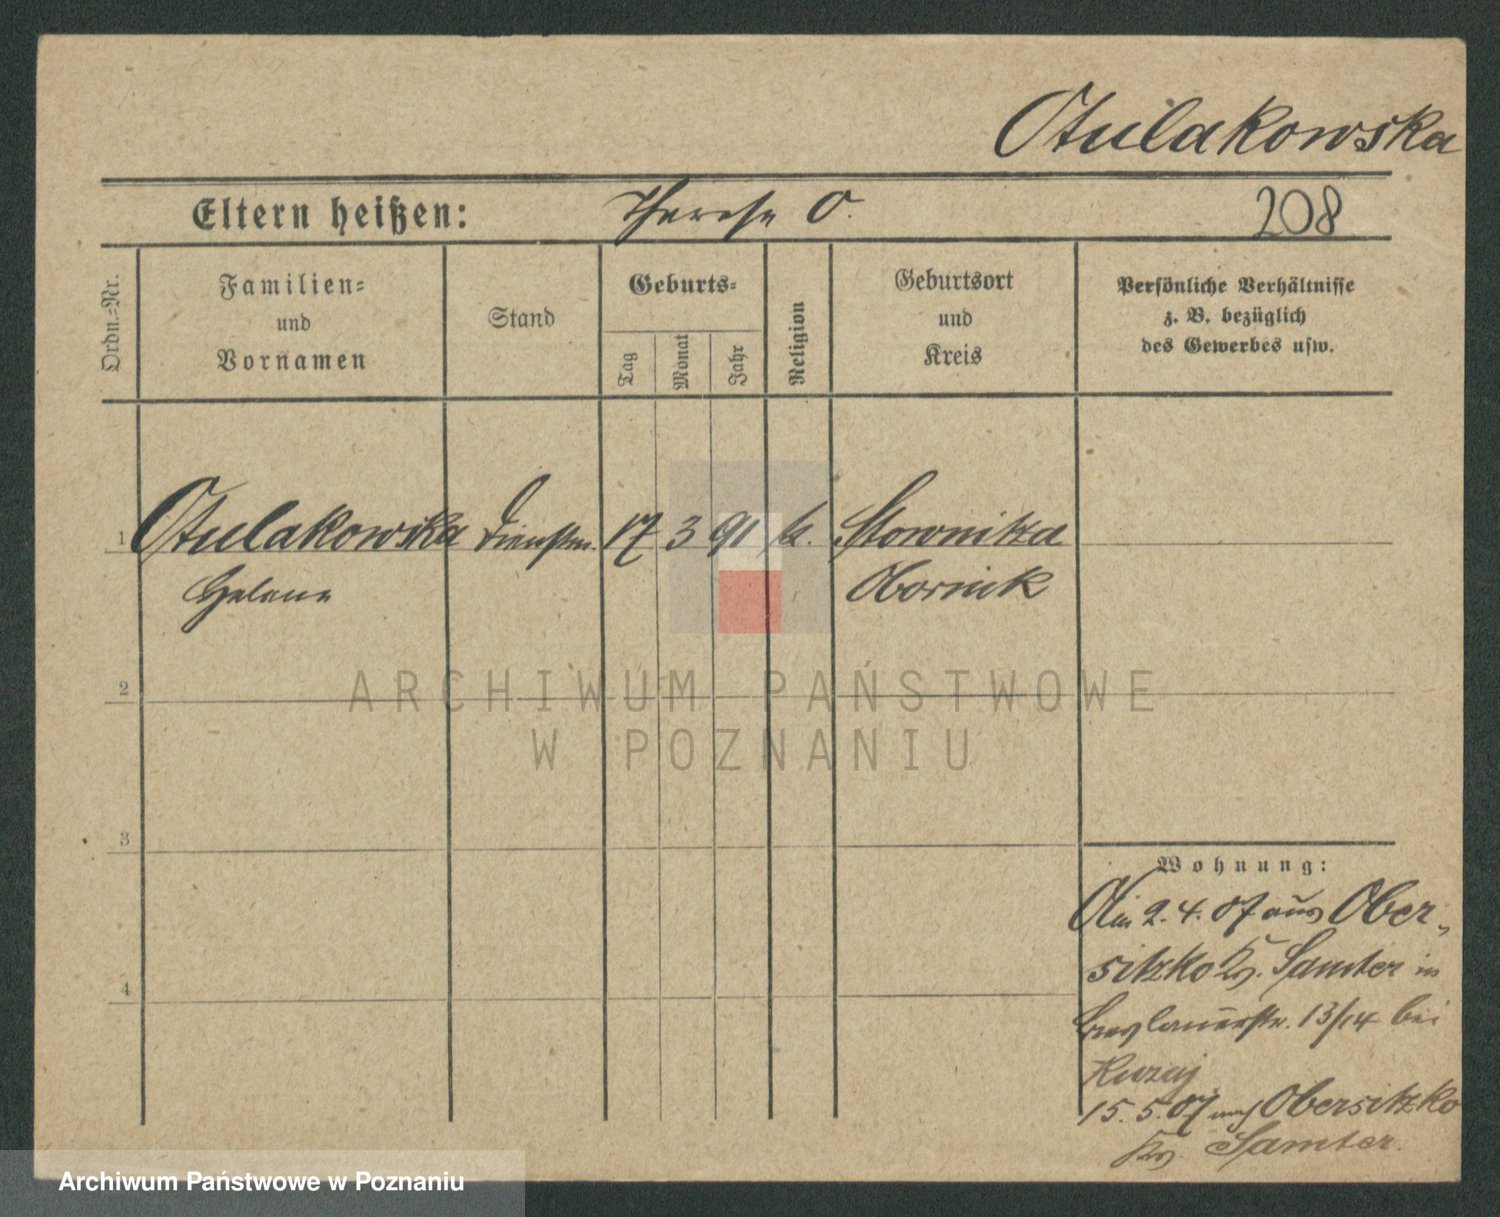 Otulakowska
Eltern heißen: Therese O. 208
Ordn.=Nr.
Familien=
und
Vornamen
Stand
Geburts=
Tag
Monat
Jahr
Religion
Geburtsort
und
Kreis
Persönliche Verhältnisse
z. B. bezüglich
des Gewerbes usw.
1 Otulakowska Dienstm. 17 3 91 k. Slownitza
Helene Obornik
2
3
4
Wohnung:
Am 2.4.07 aus Ober-
sitzko Kr. Samter in
Breslauerstr. 13/14 bei
15.5.07 nach Obersitzko
Kr. Samter.
ARCHIWUM PAŃSTWOWE
W POZNANIU
Archiwum Państwowe w Poznaniu